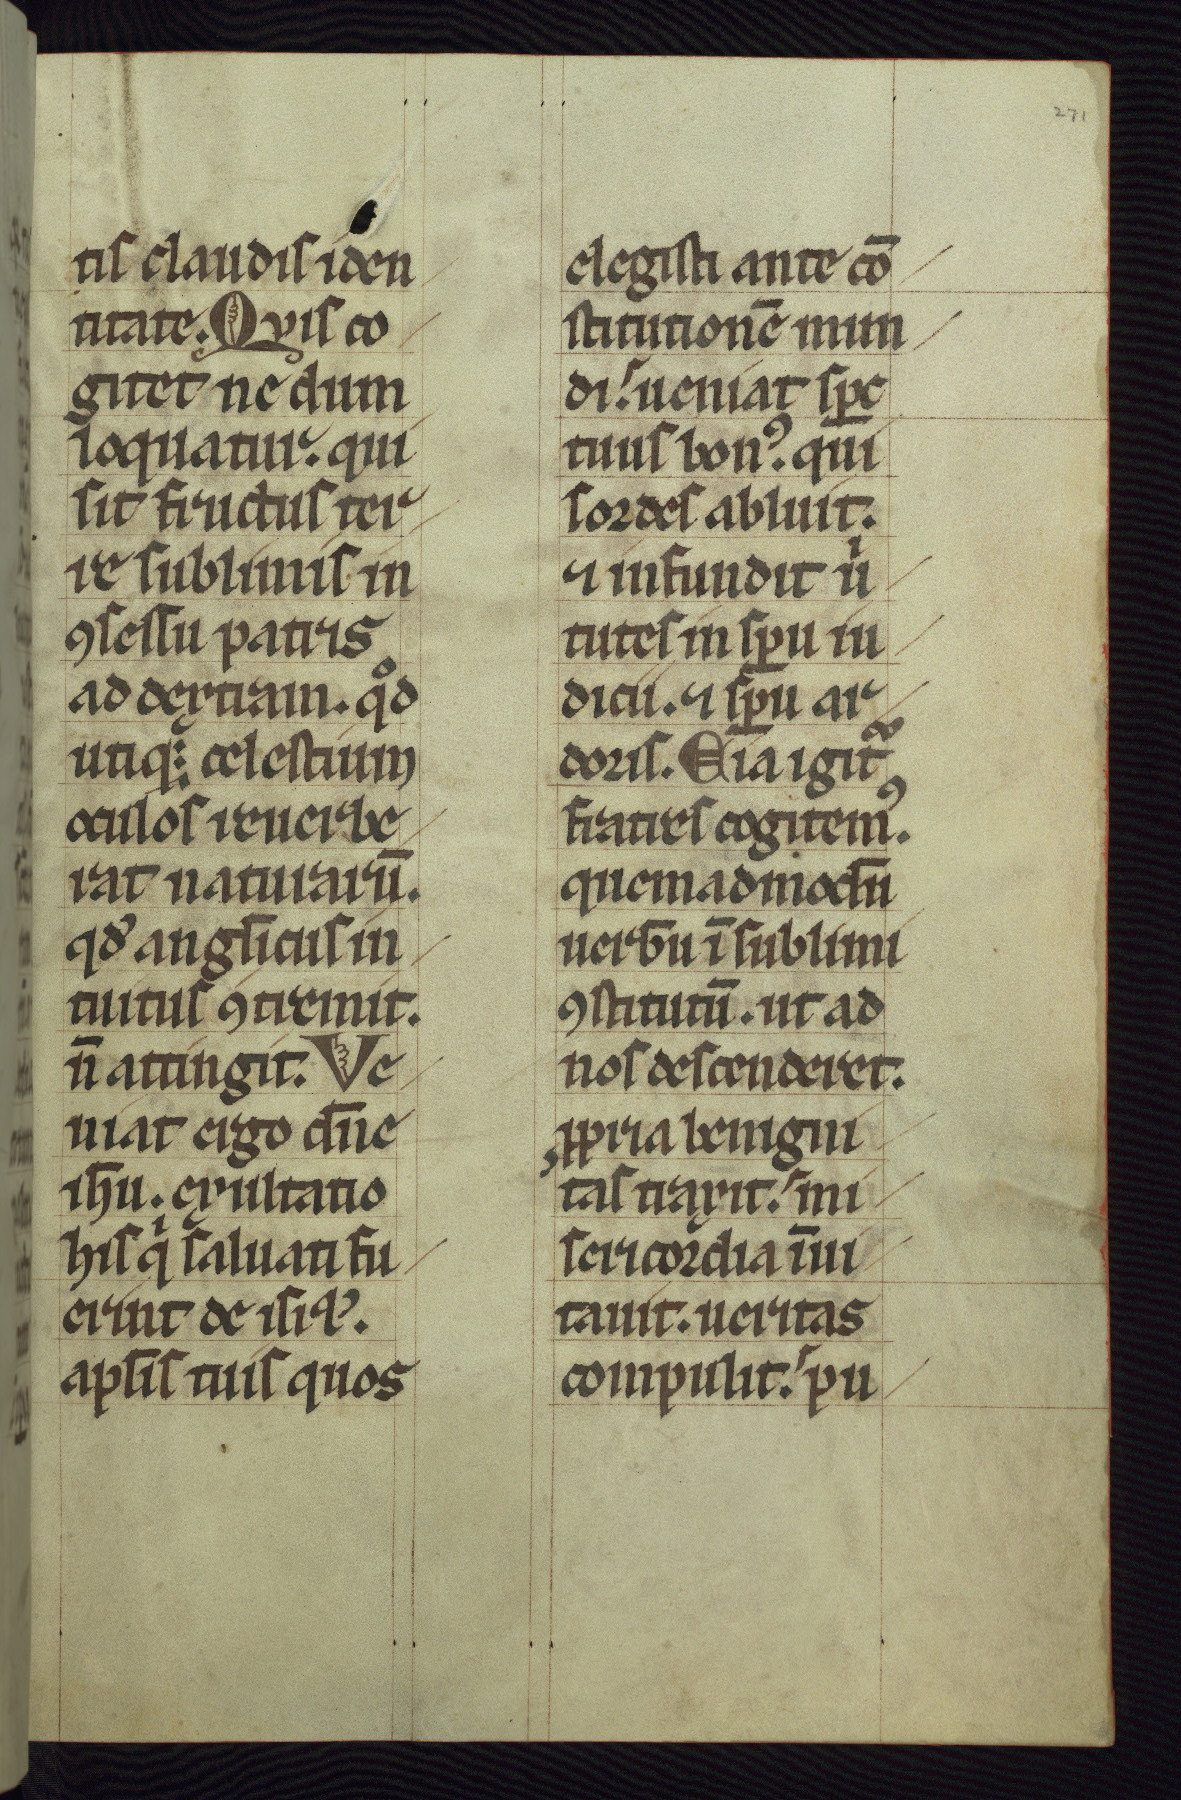 271
tis claudis iden
titate. Qvis co
gitet ne dum
loquatur. qui
sit fructus ter
re sublimis in
ꝯsessu patris
ad dextram. qͦd
utiqꝫ celestium
oculos reuerbe
rat naturarū.
qď angl̄icus in
tuitus ꝯtremit.
n̄ attingit. Ve
niat ergo dn̄e
ih̄u. exultatio
his qⁱ saluati fu
erint de isrl̓.
apl̄is tuis quos
elegisti ante cō
stitutionē mun
di. ueniat sp̄c
tuus bonꝰ. qui
sordes abluit.
⁊ infundit uⁱ
tutes in sp̄u iu
dicii. ⁊ sp̄u ar
doris. Eia igit᷑
fratres cogitemꝰ.
quemadmodū
uerb̄u ī sublimi
ꝯstitutū. ut ad
nos descenderet.
ꝓpria benigni
tas traxit. mi
sericordia īui
tauit. ueritas
compulit. pu